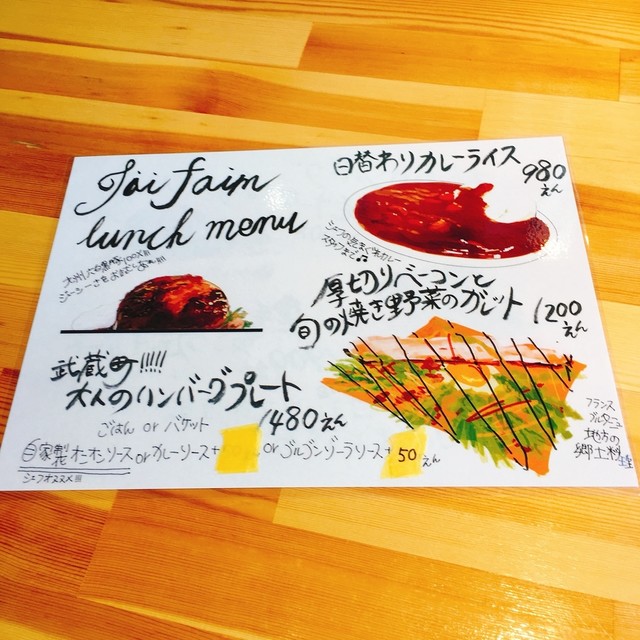 J'ai faim
lunch menu
日替わりカレーライス 980えん
シェフの気まぐれカレー
厚切りベーコンと
旬の焼き野菜のガレット 1200えん
ジューシーさを
武蔵町!!!!!
大人のハンバーグプレート
1480えん
ごはん or バゲット
自家製オニオンソース or カレーソース+ or ゴルゴンゾーラソース+50えん
シェフオススメ!!!
フランス
ブルターニュ
地方の
郷土料理